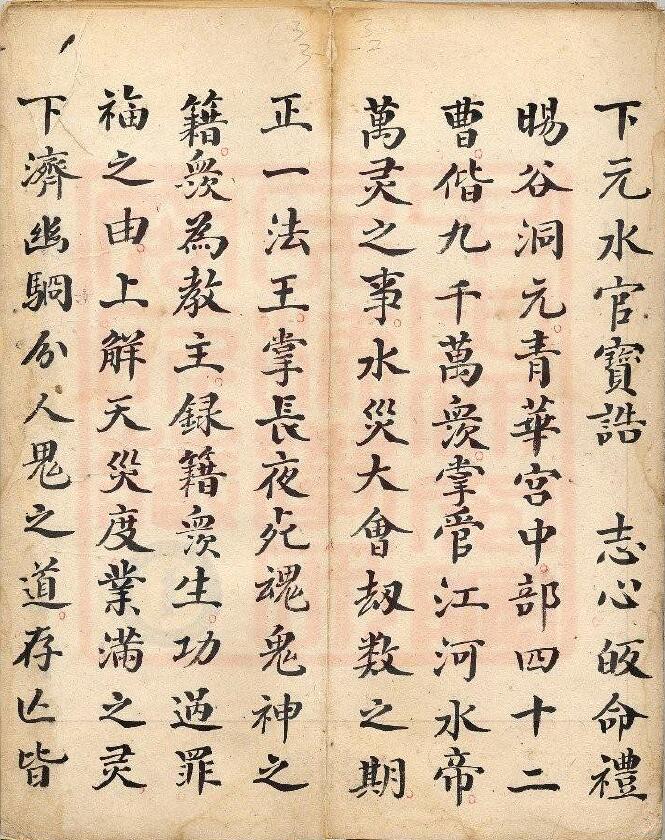 下元水官寳誥　志心皈命禮
暘谷洞元青華宫中部四十二
曹偕九千萬衆掌管江河水帝
萬灵之事水災大會刼数之期
正一法王掌長夜死魂鬼神之
籍衆為教主録籍衆生功過罪
福之由上觧天災度業滿之灵
下濟幽駉分人鬼之道存亾皆